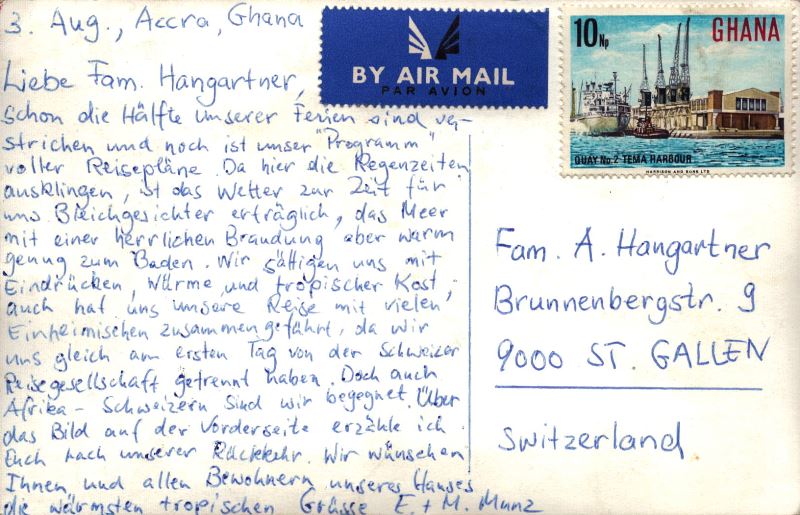 3. Aug., Accra, Ghana
Liebe Fam. Hangartner,
schon die Hälfte unserer Ferien sind ver-
strichen und noch ist unser "Programm"
voller Reisepläne. Da hier die Regenzeiten
ausklingen, ist das Wetter zur Zeit für
uns Bleichgesichter erträglich, das Meer
mit einer herrlichen Brandung aber warm
genug zum Baden. Wir sättigen uns mit
Eindrücken, Wärme und tropischer Kost,
auch hat uns unsere Reise mit vielen
Einheimischen zusammengeführt, da wir
uns gleich am ersten Tag von der Schweizer
Reisegesellschaft getrennt haben. Doch auch
Afrika-Schweizern sind wir begegnet. Über
das Bild auf der Vorderseite erzähle ich
Euch nach unserer Rückkehr. Wir wünschen
Ihnen und allen Bewohnern unseres Hauses
die wärmsten tropischen Grüsse E. + M. Munz
BY AIR MAIL
PAR AVION
10Np GHANA
QUAY No. 2 TEMA HARBOUR
HARRISON AND SONS LTD
Fam. A. Hangartner
Brunnenbergstr. 9
9000 ST. GALLEN
Switzerland